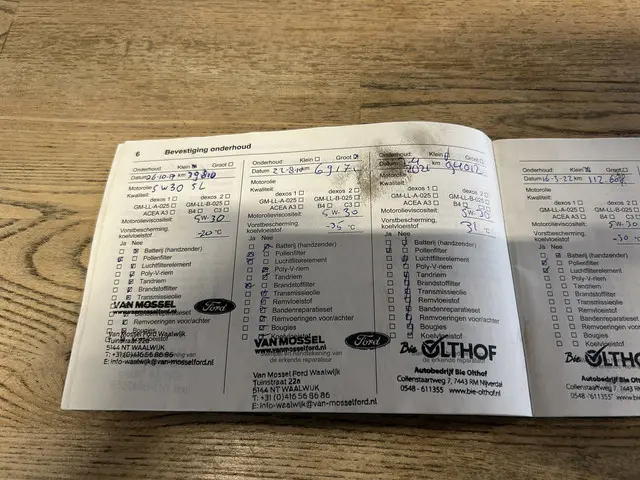 6 Bevestiging onderhoud
Onderhoud: Klein Groot
Datum 26-10-17 km
Motorolie 5W30 5L
Kwaliteit:
dexos 1 dexos 2
GM-LL-A-025 GM-LL-B-025
ACEA A3 B4 C3
Motorolieviscositeit:
5W-30
Vorstbescherming,
koelvloeistof -20 °C
Ja Nee
Batterij (handzender)
Pollenfilter
Luchtfilterelement
Poly-V-riem
Tandriem
Brandstoffilter
Transmissieolie
VAN MOSSEL
Ford
www.vanmosselford.nl
Remvoeringen voor/achter
Van Mossel Ford Waalwijk
Tuinstraat 22a
5144 NT WAALWIJK
T: +31 (0)416 56 86 86
E: info-waalwijk@van-mosselford.nl
Onderhoud: Klein Groot
Datum km
Motorolie
Kwaliteit:
dexos 1 dexos 2
GM-LL-A-025 GM-LL-B-025
ACEA A3 B4 C3
Motorolieviscositeit:
5W-30
Vorstbescherming,
koelvloeistof °C
Ja Nee
Batterij (handzender)
Pollenfilter
Luchtfilterelement
Poly-V-riem
Tandriem
Brandstoffilter
Transmissieolie
Remvloeistof
Bandenreparatieset
Remvoeringen voor/achter
Bougies
VAN MOSSEL
Ford
www.vanmosselford.nl
de erkende reparateur
Van Mossel Ford Waalwijk
Tuinstraat 22a
5144 NT WAALWIJK
T: +31 (0)416 56 86 86
E: info-waalwijk@van-mosselford.nl
Onderhoud: Klein Groot
Datum 2021 km 94012
Motorolie
Kwaliteit:
dexos 1 dexos 2
GM-LL-A-025 GM-LL-B-025
ACEA A3 B4 C3
Motorolieviscositeit:
5W-30
Vorstbescherming,
koelvloeistof °C
Ja Nee
Batterij (handzender)
Pollenfilter
Luchtfilterelement
Poly-V-riem
Tandriem
Brandstoffilter
Transmissieolie
Remvloeistof
Bandenreparatieset
Remvoeringen voor/achter
Bougies
Koelvloeistof
Bie OLTHOF
de erkende reparateur
Autobedrijf Bie Olthof
Collenstaartweg 7, 7443 RM Nijverdal
0548-611355 www.bie-olthof.nl
Onderhoud: Klein Groot
Datum 16-3-22 km
Motorolie
Kwaliteit:
dexos 1
GM-LL-A-025
ACEA A3
Motorolieviscositeit:
5W-30
Vorstbescherming,
koelvloeistof -30
Ja Nee
Batterij (handzender)
Pollenfilter
Luchtfilterelement
Poly-V-riem
Tandriem
Brandstoffilter
Transmissieolie
Remvloeistof
Bandenreparatieset
Remvoeringen voor/achter
Bougies
Koelvloeistof
Bie OLTHOF
Autobedrijf Bie Olthof
Collenstaartweg 7, 7443 RM
0548-611355 www.bie-